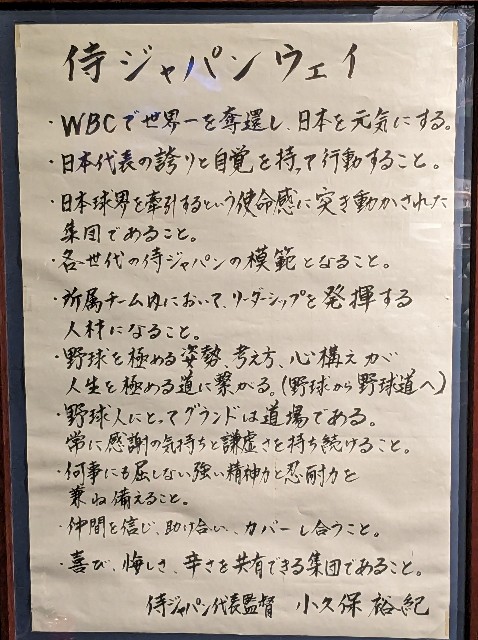 侍ジャパンウェイ
・WBCで世界一を奪還し、日本を元気にする。
・日本代表の誇りと自覚を持って行動すること。
・日本球界を牽引するという使命感に突き動かされた
集団であること。
・各世代の侍ジャパンの模範となること。
・所属チーム内において、リーダーシップを発揮する
人材になること。
・野球を極める姿勢、考え方、心構えが
人生を極める道に繋がる。(野球から野球道へ)
・野球人にとってグランドは道場である。
常に感謝の気持ちと謙虚さを持ち続けること。
・何事にも屈しない強い精神力と忍耐力を
兼ね備えること。
・仲間を信じ、助け合い、カバーし合うこと。
・喜び、悔しさ、辛さを共有できる集団であること。
侍ジャパン代表監督 小久保裕紀